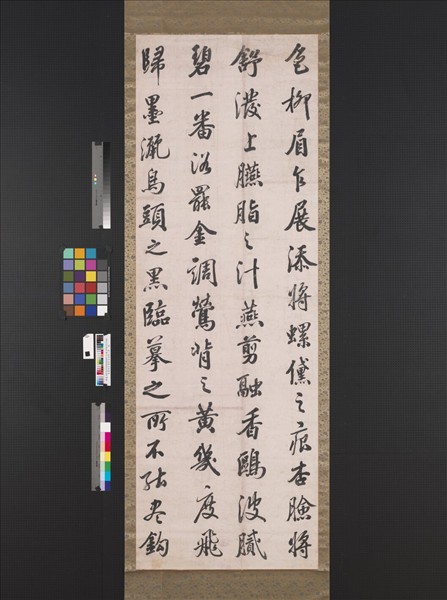 色柳眉乍展添將螺黛之痕杏臉將
舒潑上臙脂之汁燕剪融香鷗波膩
碧一番浴罷金調鶯背之黃幾度飛
歸墨灑烏頭之黑臨摹之所不能盡鈎